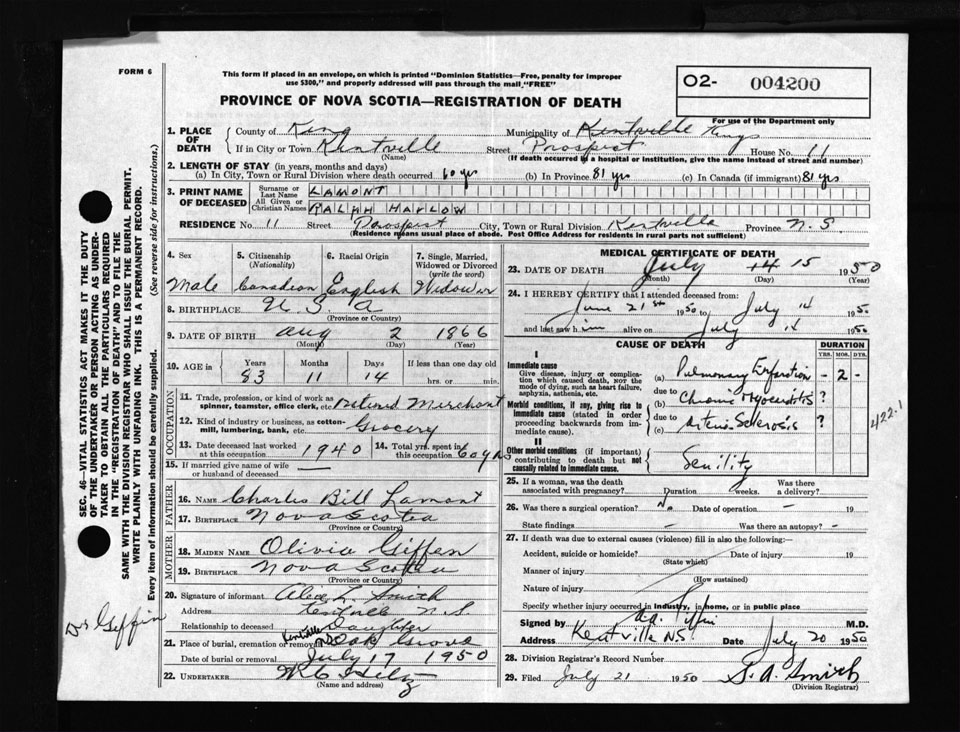 FORM 6
This form if placed in an envelope, on which is printed "Dominion Statistics—Free, penalty for improper
use $300," and properly addressed will pass through the mail, "FREE"
O2- 004200
PROVINCE OF NOVA SCOTIA—REGISTRATION OF DEATH
For use of the Department only
1. PLACE OF DEATH { County of King Municipality of Kentville Kings
If in City or Town Kentville (Name) Street Prospect House No. 11
(If death occurred in a hospital or institution, give the name instead of street and number)
2. LENGTH OF STAY (in years, months and days)
(a) In City, Town or Rural Division where death occurred 60 yrs (b) In Province 81 yrs (c) In Canada (if immigrant) 81 yrs
3. PRINT NAME OF DECEASED { Surname or Last Name LAMONT
All Given or Christian Names RALPH HARLOW
RESIDENCE No. 11 Street Prospect City, Town or Rural Division Kentville Province N. S
(Residence means usual place of abode. Post Office Address for residents in rural parts not sufficient)
4. Sex 5. Citizenship (Nationality) 6. Racial Origin 7. Single, Married, Widowed or Divorced (write the word)
Male Canadian English Widower
8. BIRTHPLACE U. S. A
(Province or Country)
9. DATE OF BIRTH Aug 2 1866
(Month) (Day) (Year)
10. AGE in { Years Months Days If less than one day old
83 11 14 hrs. or min.
OCCUPATION
11. Trade, profession, or kind of work as spinner, teamster, office clerk, etc. Retired Merchant
12. Kind of industry or business, as cotton-mill, lumbering, bank, etc. Grocery
13. Date deceased last worked at this occupation 1940 14. Total yrs. spent in this occupation 60 yrs
15. If married give name of wife or husband of deceased —
FATHER
16. NAME Charles Bill Lamont
17. BIRTHPLACE Nova Scotia
(Province or Country)
MOTHER
18. MAIDEN NAME Olivia Giffen
19. BIRTHPLACE Nova Scotia
(Province or Country)
20. Signature of informant L. Smith
Address Kentville N. S
Relationship to deceased Daughter
21. Place of burial, cremation or removal Kentville Oak Grove
Date of burial or removal July 17 1950
22. UNDERTAKER W C Hiltz
(Name and address)
MEDICAL CERTIFICATE OF DEATH
23. DATE OF DEATH July 14 15 1950
(Month) (Day) (Year)
24. I HEREBY CERTIFY that I attended deceased from:
June 21st 1950 to July 14 1950
and last saw him alive on July 14 1950
CAUSE OF DEATH DURATION
YRS. MOS. DYS.
I
Immediate cause
Give disease, injury or complication which caused death, not the mode of dying, such as heart failure, asphyxia, asthenia, etc.
(a) Pulmonary Infarction - 2 -
due to
Morbid conditions, if any, giving rise to immediate cause (stated in order proceeding backwards from immediate cause).
(b) Chronic Myocarditis ?
due to
(c) Arterio Sclerosis ?
422.1
II
Other morbid conditions (if important) contributing to death but not causally related to immediate cause.
Senility
25. If a woman, was the death associated with pregnancy? Duration weeks. Was there a delivery?
26. Was there a surgical operation? No Date of operation — 19
State findings — Was there an autopsy? -
27. If death was due to external causes (violence) fill in also the following:
Accident, suicide or homicide? Date of injury 19
(State which)
Manner of injury
(How sustained)
Nature of injury
Specify whether injury occurred in industry, in home, or in public place
Signed by Giffin M.D.
Address Kentville NS. Date July 20 1950
28. Division Registrar's Record Number
29. Filed July 21 1950 S. A. Smith
(Division Registrar)
SEC. 46—VITAL STATISTICS ACT MAKES IT THE DUTY
OF THE UNDERTAKER OR PERSON ACTING AS UNDER-
TAKER TO OBTAIN ALL THE PARTICULARS REQUIRED
IN THE "REGISTRATION OF DEATH" AND TO FILE THE
SAME WITH THE DIVISION REGISTRAR WHO SHALL ISSUE THE BURIAL PERMIT.
WRITE PLAINLY WITH UNFADING INK. THIS IS A PERMANENT RECORD.
Every item of information should be carefully supplied. (See reverse side for instructions.)
Drs Giffin